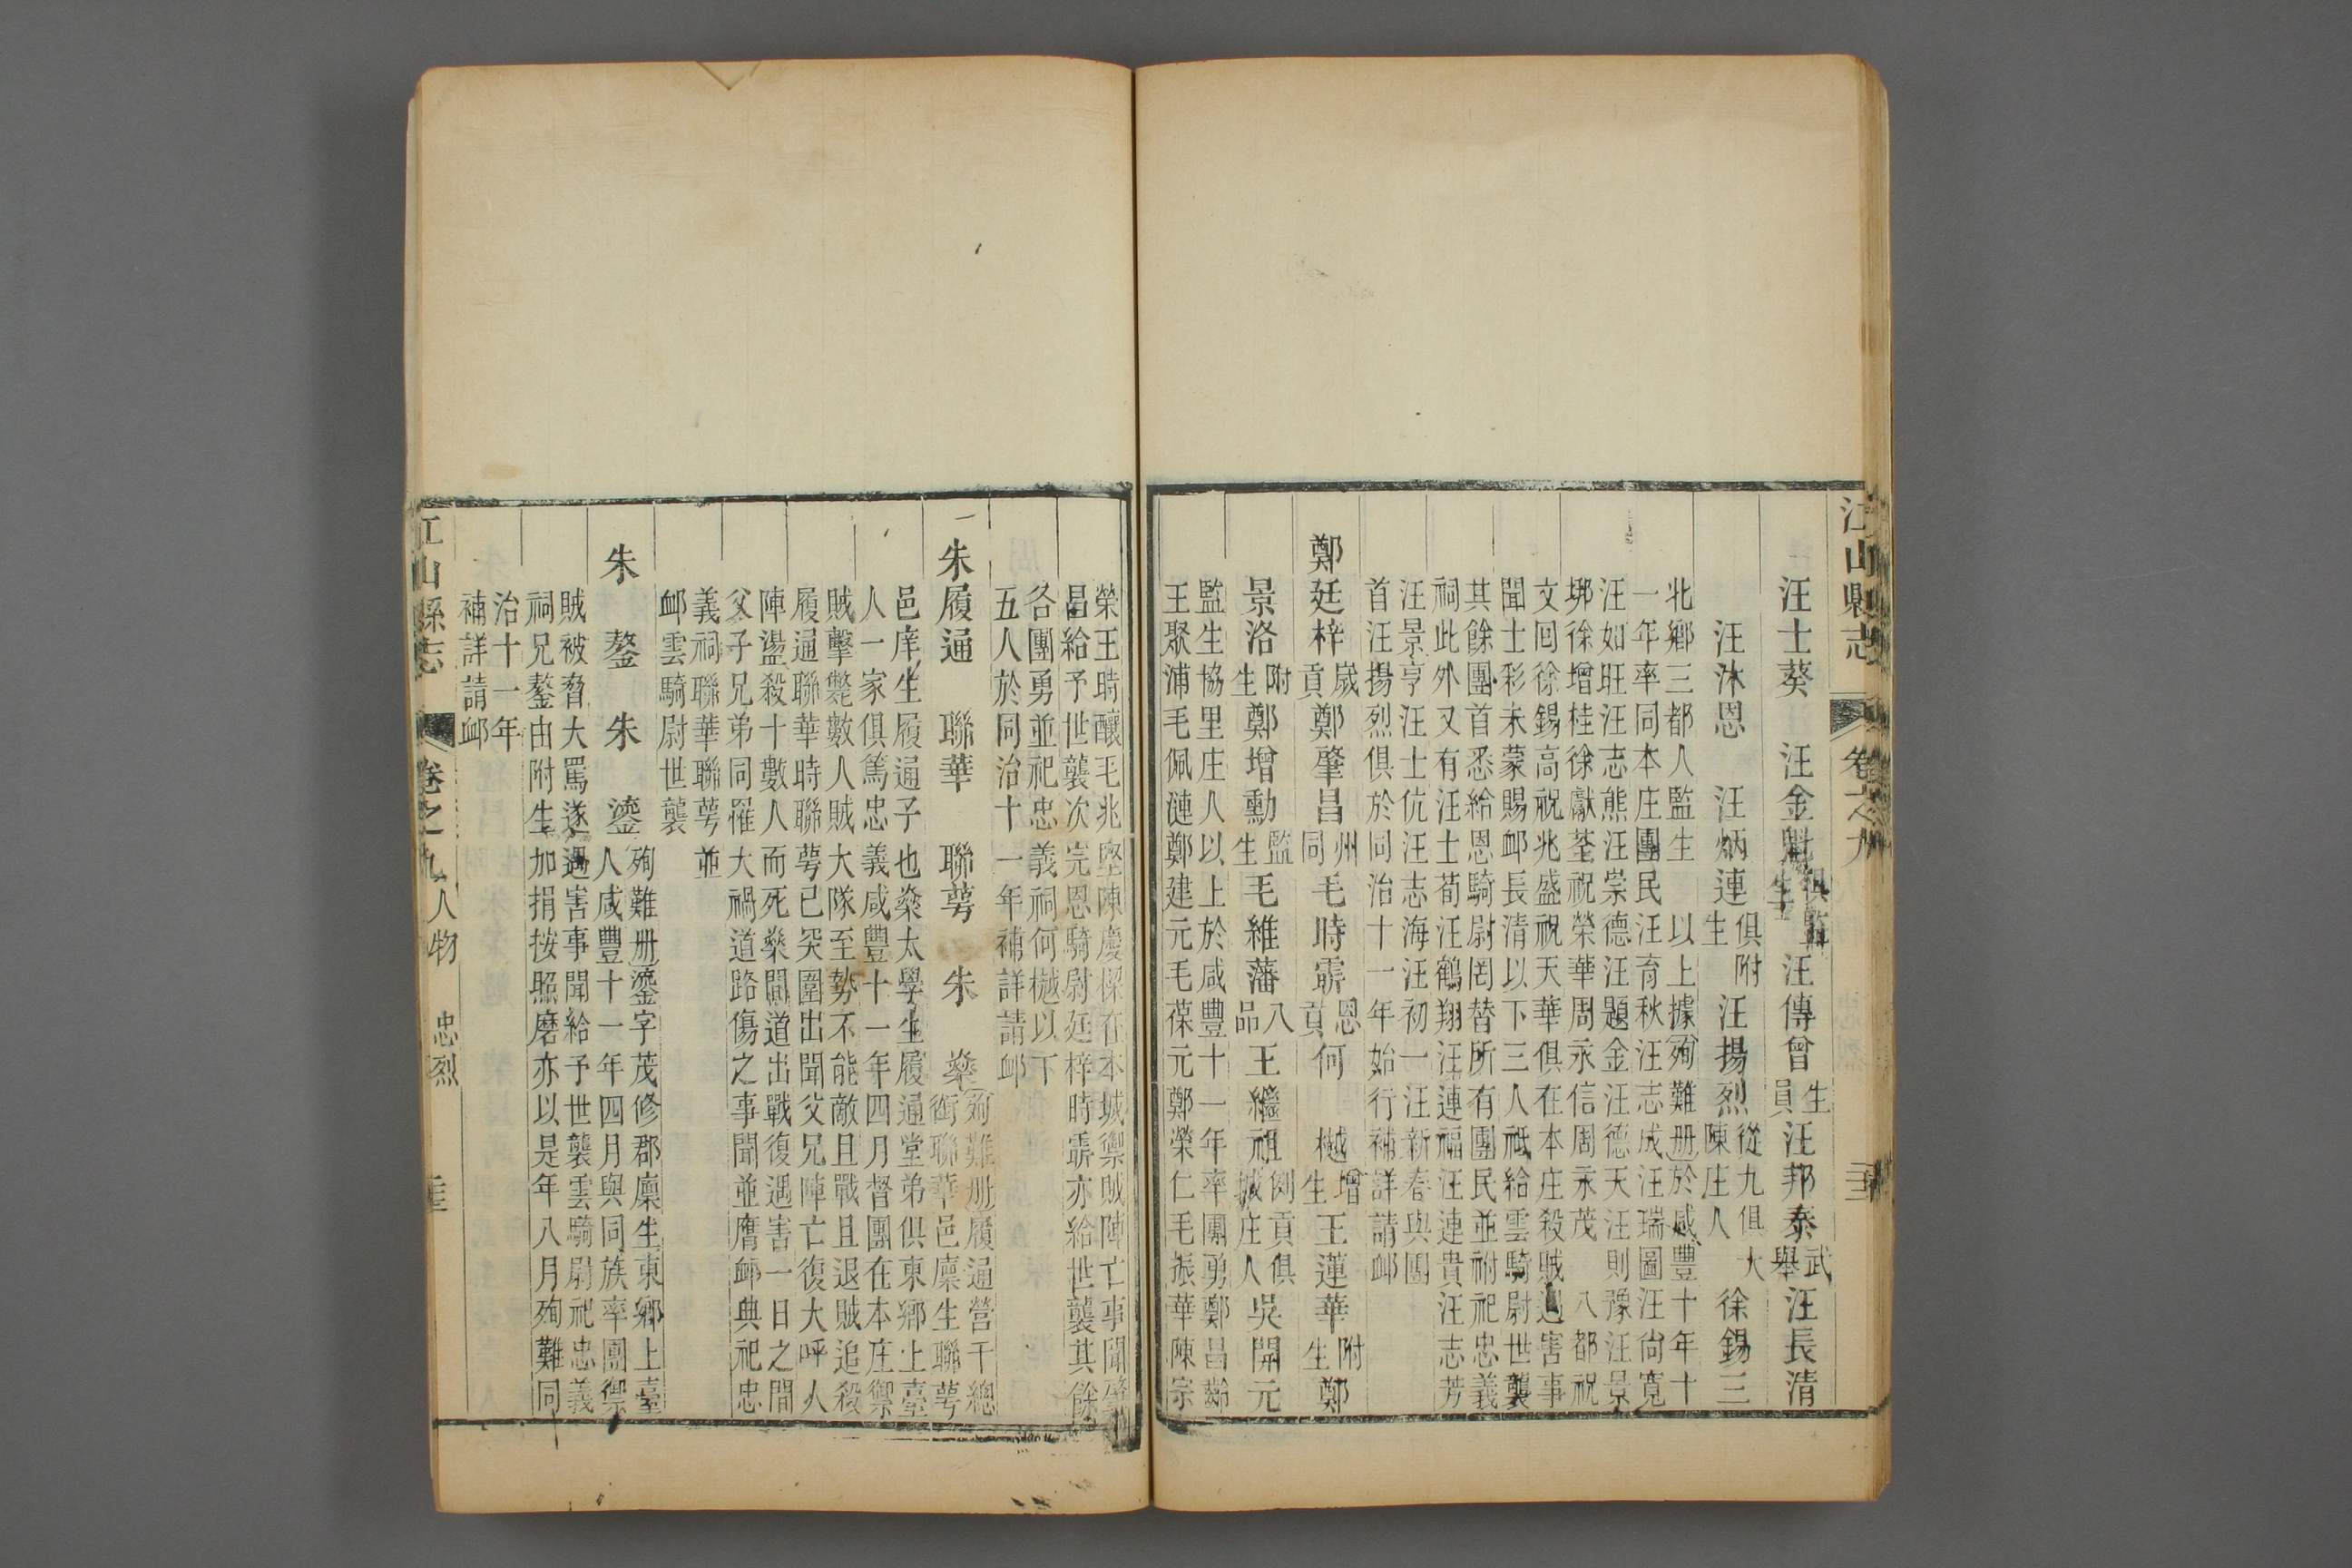 江山縣志 卷之九
汪士葵 汪金魁 俱監生 汪傳曾 生員 汪邦泰 武舉 汪長清
汪沐恩 汪炳連 俱附生 汪揚烈 從九俱大陳庄人 徐錫三
北鄉三都人監生 以上據殉難册於咸豐十年十
一年率同本庄團民汪育秋汪志成汪瑞圖汪尙寬
汪如旺汪志熊汪崇德汪題金汪德天汪則豫汪景
塛徐增桂徐獻荃祝榮華周永信周永茂 八都祝
文囘徐錫高祝兆盛祝天華俱在本庄殺賊遇害事
聞士彩未蒙賜䘏長清以下三人祗給雲騎尉世襲
其餘團首悉給恩騎尉罔替所有團民並祔祀忠義
祠此外又有汪士荀汪鶴翔汪連福汪連貴汪志芳
汪景亨汪士伉汪志海汪初一汪新春與團
首汪揚烈俱於同治十一年始行補詳請䘏
鄭廷梓 歲貢 鄭肇昌 州同 毛時霖 恩貢 何樾 增生 王蓮華 附生 鄭
景洛 附生 鄭增勳 監生 毛維藩 八品 王繼祖 例貢俱城庄人 吳開元
監生協里庄人以上於咸豐十一年率團勇鄭昌齡
王聚浦毛佩漣鄭建元毛葆元鄭榮仁毛振華陳宗
榮王時釀毛兆堅陳慶樑在本城禦賊陣亡事聞肇
昌給予世襲次完恩騎尉廷梓時霖亦給世襲其餘
各團勇並祀忠義祠何樾以下
五人於同治十一年補詳請䘏
朱履通 聯華 聯萼 朱燊 殉難册履通營千總
銜聯華邑廪生聯萼
邑庠生履通子也燊太學生履通堂弟俱東鄉上臺
人一家俱篤忠義咸豐十一年四月督團在本庄禦
賊擊斃數人賊大隊至勢不能敵且戰且退賊追殺
履通聯華時聯萼已突圍出聞父兄陣亡復大呼入
陣盪殺十數人而死燊間道出戰復遇害一日之間
父子兄弟同罹大禍道路傷之事聞並膺䘏典祀忠
義祠聯華聯萼並
䘏雲騎尉世襲
朱鏊 朱鎏 殉難册鎏字茂修郡廪生東鄉上臺
人咸豐十一年四月與同族率團禦
賊被脅大罵遂遇害事聞給予世襲雲騎尉祀忠義
祠兄鏊由附生加捐按照磨亦以是年八月殉難同
治十一年
補詳請䘏
江山縣志 卷之九 人物 忠烈